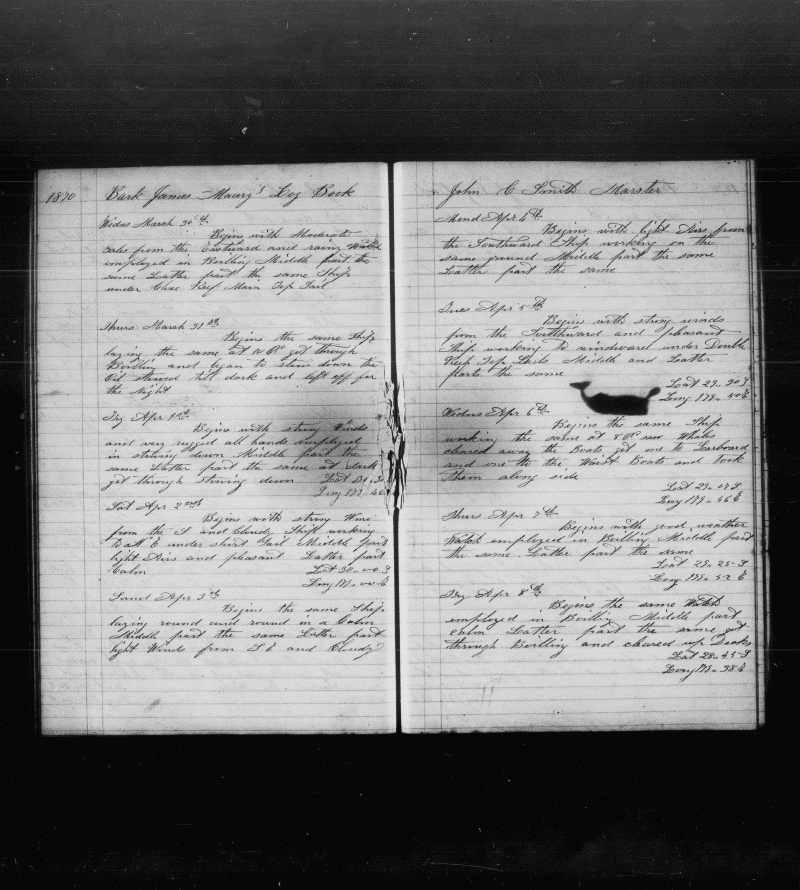 1870 Bark James Maury's Log Book
Wedns March 30th
Begins with Moderate
Gales from the Eastward and rainy Watch
employed in Boiling Middle part the
same Latter part the same Ship
under Close Reef Main Top Sail
Thurs March 31st
Begins the same Ship
laying the same at 10 PM got through
Boiling and began to stow down the
Oil stowed till dark and left off for
the Night
Fry Apr 1st
Begins with strong Winds
and very rugged all hands employed
in stowing down Middle part the
same Latter part the same at dark
got through stowing down Lat
Long 179 40
Sat Apr 2nd
Begins with strong Wind
from the S and Cloudy Ship working
to E under short Sail Middle part
light Airs and pleasant Latter part
Calm Lat 30.00 S
Long 179.00 E
Sund Apr 3rd
Begins the same Ship
laying round and round in a Calm
Middle part the same Latter part
light Winds from S E and Cloudy
John C Smith Marster
Mond Apr 4th
Begins with light Airs from
the Southward Ship working on the
same ground Middle part the same
Latter part the same
Tues Apr 5th
Begins with strong winds
from the Southward and pleasant
Ship working to windward under Double
Reef Top Sails Middle and Latter
parts the same
Lat 29.30 S
Long 179.50 E
Wedns Apr 6th
Begins the same Ship
working the same at 8 saw Whales
cleared away the Boats got one to Larboard
and one to the Waist Boats and took
them along side
Lat 29.07 S
Long 179.46 E
Thurs Apr 7th
Begins with good weather
Watch employed in Boiling Middle part
the same Latter part the same
Lat 29.25 S
Long 179.52 E
Fry Apr 8th
Begins the same Watch
employed in Boiling Middle part
calm Latter part the same got
through Boiling and cleared up Decks
Lat 28.45 S
Long 179.38 E